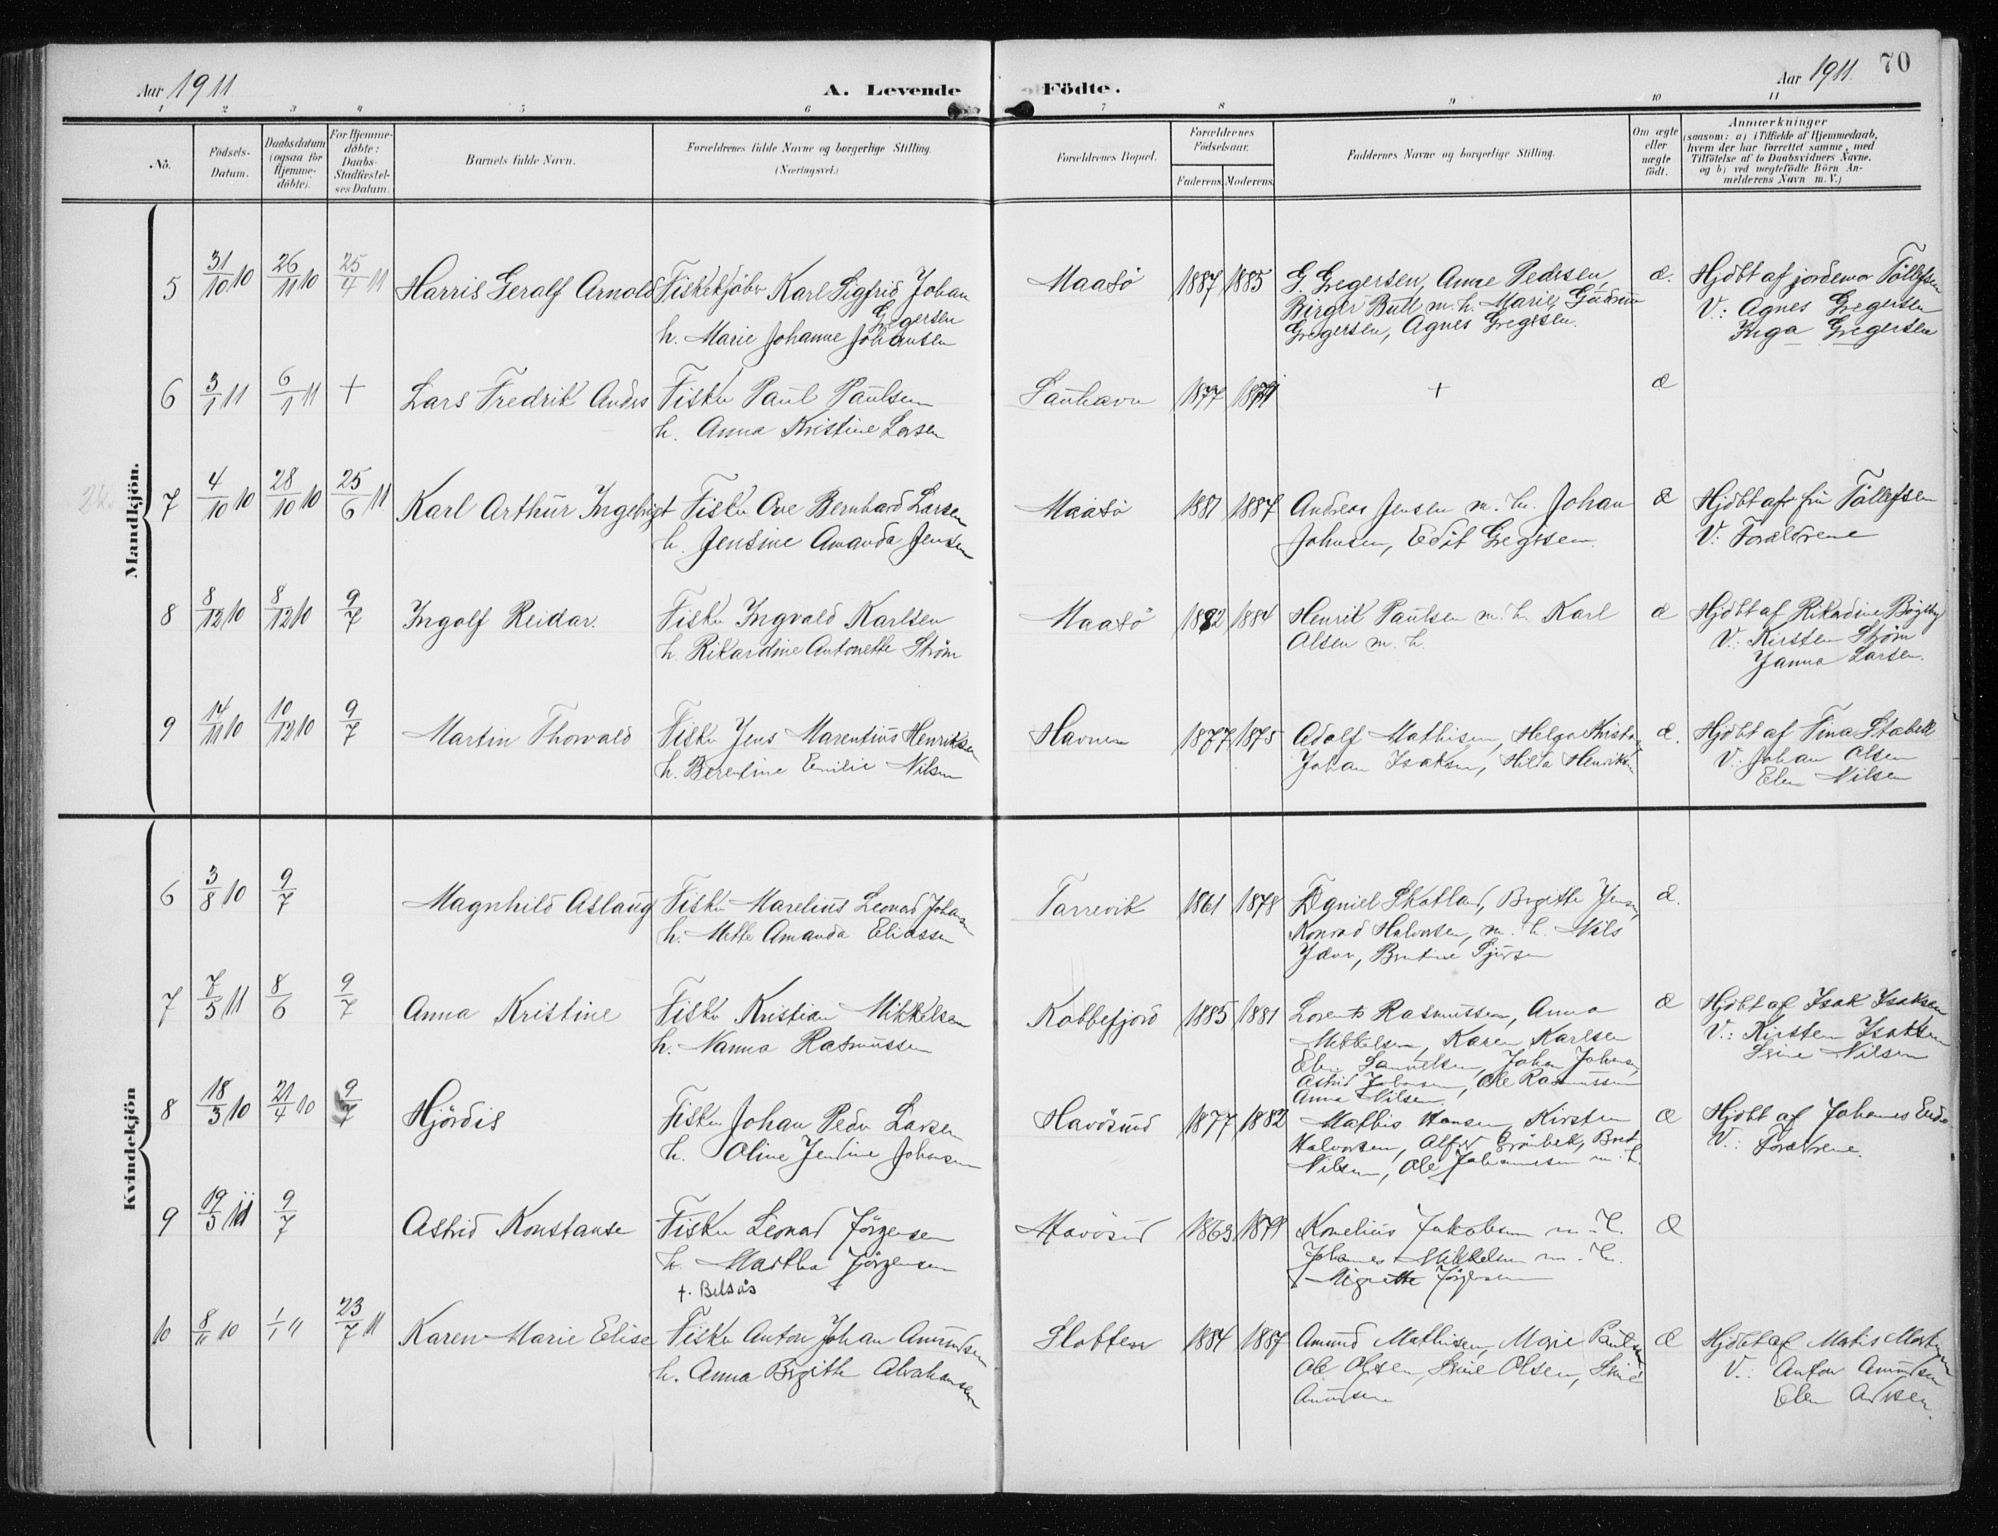 Aar 1911
A. Levende Födte.
Aar 1911. 70
1 2 3 4 5 6 7 8 9 10 11
No.
Födsels-Datum.
Daabsdatum (ogsaa for Hjemme-döbte).
For Hjemme-döbte: Daabs-Stadfæstel-ses Datum.
Barnets fulde Navn.
Forældrenes fulde Navne og borgerlige Stilling. (Næringsvei.)
Forældrenes Bopæl.
Forældrenes Födselsaar.
Faderens. Moderens.
Faddernes Navne og borgerlige Stilling.
Om ægte eller uægte födt.
Anmærkninger
(saasom: a) i Tilfælde af Hjemmedaab,
hvem der har forrettet samme, med
Tilföielse af to Daabsvidners Navne,
og b) ved uægtefödte Börn An-
melderens Navn m. V.)
Mandkjön.
5 31/10 10 26/11 10 25/4 11 Harris Geralf Arnold Fiskekjöber Karl Sigfrid Johan
Gregersen
h. Marie Johanne Johansen
Maasö 1887 1885
G. Gregersen, Anne Pedersen,
Birger Bull m. h. Marie Gudrun
Gregersen, Agnes Gregersen.
æ. Hjdbt af jordemor Tollefsen
V.: Agnes Gregersen
Inga Gregersen
6 3/1 11 6/1 11 + Lars Fredrik Anders Fisker Paul Paulsen
h. Anna Kristine Larsen
1877 + æ
7 4/10 10 28/10 10 25/6 11 Karl Arthur Ingebrigt Fisker Ove Bernhard Larsen
h. Jensine Amanda Jensen
Maasö 1881 1887
Andreas Jensen m. h. Johan
Johnsen, Edit Gregersen.
æ Hjdbt af fru Tollefsen
V: Forældrene
8 8/12 10 8/12 10 9/7 Ingolf Reidar. Fisker Ingvald Karlsen
h. Rikardine Antonette Strøm
Maasö 1882 1884
Henrik Paulsen m. h. Karl
Olsen m. h.
æ Hjdbt af Rikardine
V.: Kirsten Strøm
Janna Larsen.
9 14/11 10 10/12 10 9/7 Martin Thorvald Fisker Jens Marentius Henriksen
h. Berentine Emilie Nilsen
Havnen 1877 1875
Adolf Mathisen, Helga Krist.
Johan Isaksen, Hilda Henriksen
æ. Hjdbt af Tina Stabell
V: Johan Olsen
Elen Nilsen
Kvindekjön
6 3/8 10 9/7 Magnhild Aslaug Fisker Marelius Leonard Johansen
h. Mette Amanda Eliassen
Tarrevik 1861 1878
Daniel Skotland, Brgitte Jensen,
Konrad Halvorsen, m. h. Nils
æ.
7 7/5 11 8/6 9/7 Anna Kristine Fisker Kristian Mikkelsen
h. Nanna Rasmussen
Kobbefjord 1885 1881
Lorents Rasmussen, Anna
Mikkelsen, Karen Karlsen
Elen Samuelsen, Johan Johansen,
Astrid Johansen, Ole Rasmussen
Anna Nilsen.
æ Hjdbt af Isak Isaksen
V.: Kirsten Isaksen
Nilsen
8 18/3 10 21/4 10 9/7 Hjördis Fisker Johan Peder Larsen
h. Oline Jentine Johansen
Havösund 1877 1882
Mathis Hansen, Kirsten
Halvorsen, Alfred Grönbek, Berit
Nilsen, Ole Johannesen m. h.
æ Hjdbt af Johannes
V.: Forældrene.
9 19/5 11 9/7 Astrid Konstanse Fisker Leonard Jörgensen
h. Martha Jörgensen
f. Belsås
Havösund 1863 1879
Kornelius Jakobsen m. h.
Johannes Mikkelsen m. h.
Jörgensen
æ
10 8/11 10 1/1 11 23/7 11 Karen Marie Elise Fisker Anton Johan Amundsen
h. Anna Brgitte Abrahamsen
Slotten 1884 1887
Amund Mathisen, Marie Paulsen
Ole Olsen, Olsen,
Amundsen
æ Hjdbt af Matis
V.: Anton Amundsen
Elen